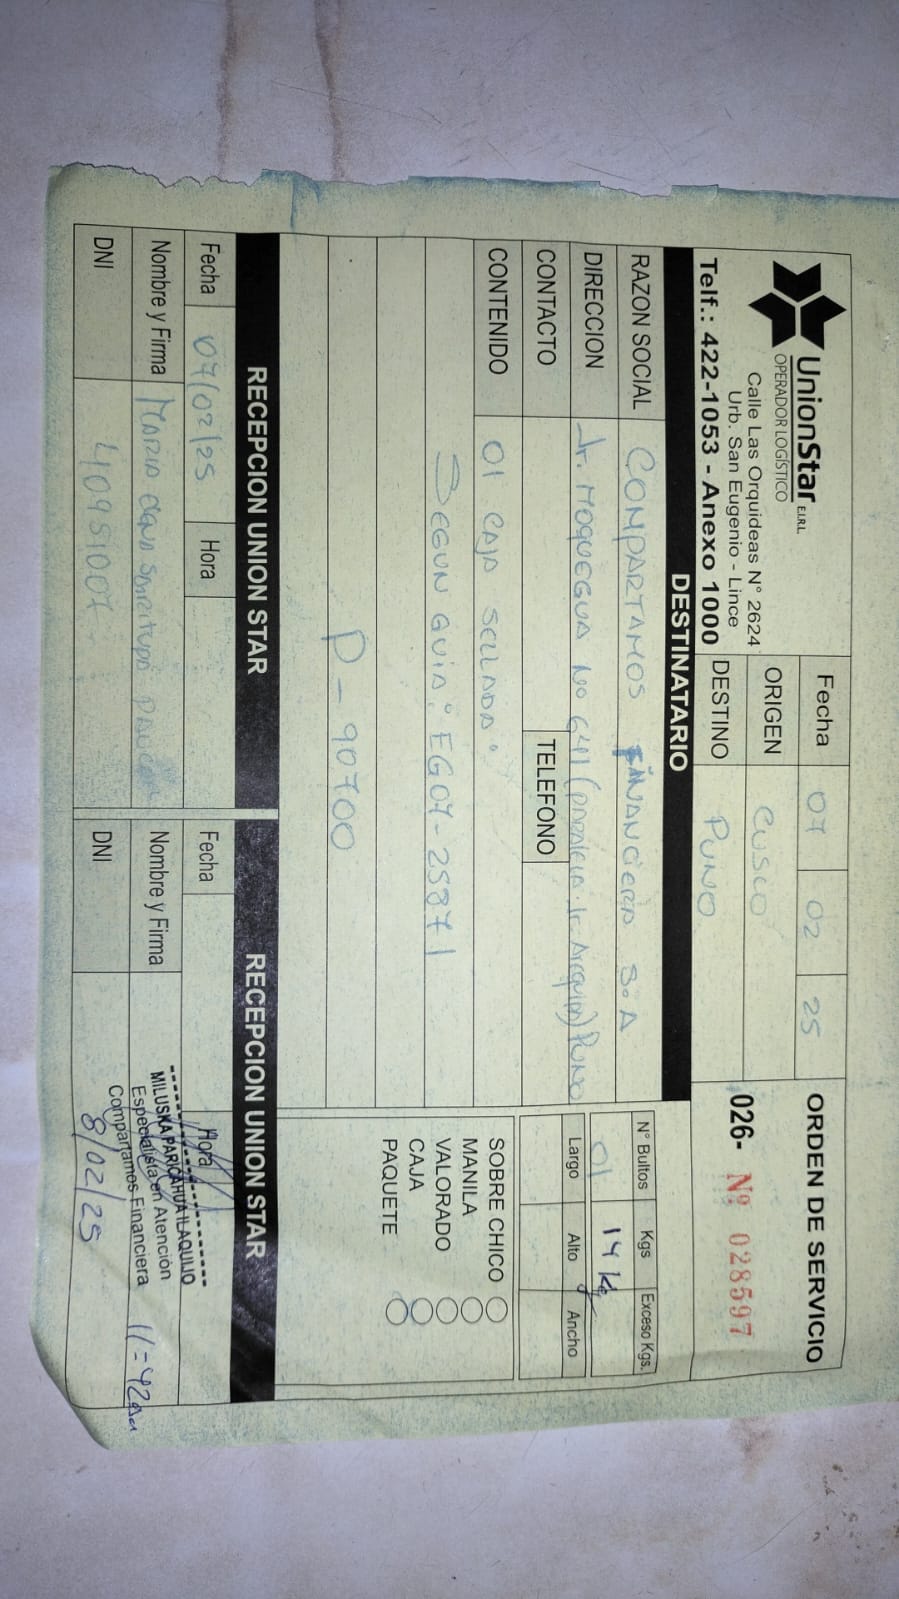 UnionStar E.I.R.L.
OPERADOR LOGÍSTICO
Calle Las Orquideas N° 2624
Urb. San Eugenio - Lince
Telf.: 422-1053 - Anexo 1000
Fecha 07 02 25
ORIGEN CUSCO
DESTINO PUNO
ORDEN DE SERVICIO
026- Nº 028597
DESTINATARIO
RAZON SOCIAL COMPARTAMOS FINANCIERA S.A
DIRECCION Jr. MOQUEGUA No 641 (PARALELA Jr. Arequipa) PUNO
CONTACTO TELEFONO
CONTENIDO 01 CAJA SELLADA
SEGUN GUIA: EG07-25871
P-90700
N° Bultos Kgs Exceso Kgs.
01 14 kg
Largo Alto Ancho
SOBRE CHICO
MANILA
VALORADO
CAJA
PAQUETE
RECEPCION UNION STAR
Fecha 07/02/25 Hora
Nombre y Firma MARIO
DNI 40951007
RECEPCION UNION STAR
Fecha Hora
Nombre y Firma
DNI
MILUSKA PARICAHUA ILAQUIJO
Especialista en Atención
Compartamos Financiera
8/02/25
11=42am